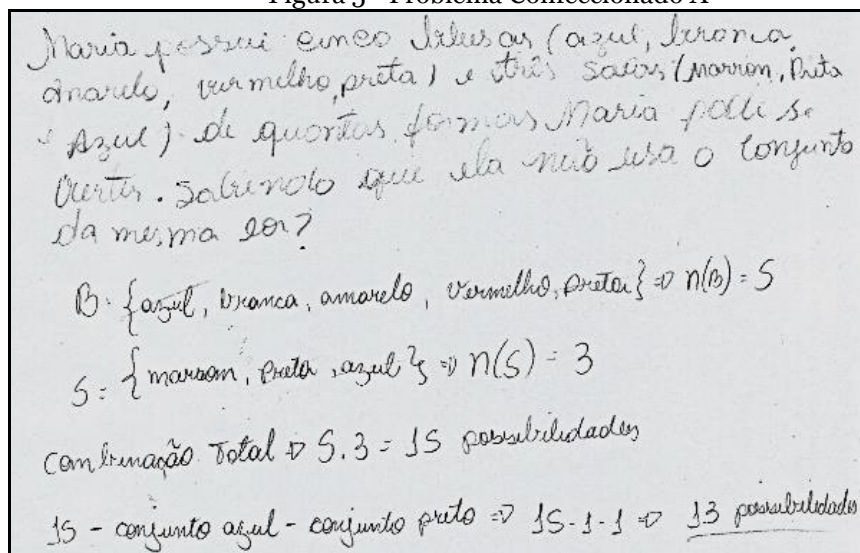 Figura 3 - Problema Confeccionado A
Maria possui cinco blusas (azul, branca,
amarelo, vermelho, preta) e três saias (Marrom, Preta
e Azul) de quantas formas Maria pode se
vestir. Sabendo que ela não usa o conjunto
da mesma cor?
B: {azul, branca, amarelo, vermelho, preta} => n(B) = 5
S = {marrom, preta, azul} => n(S) = 3
Combinação Total => 5.3 = 15 possibilidades
15 - conjunto azul - conjunto preto => 15-1-1 => 13 possibilidades